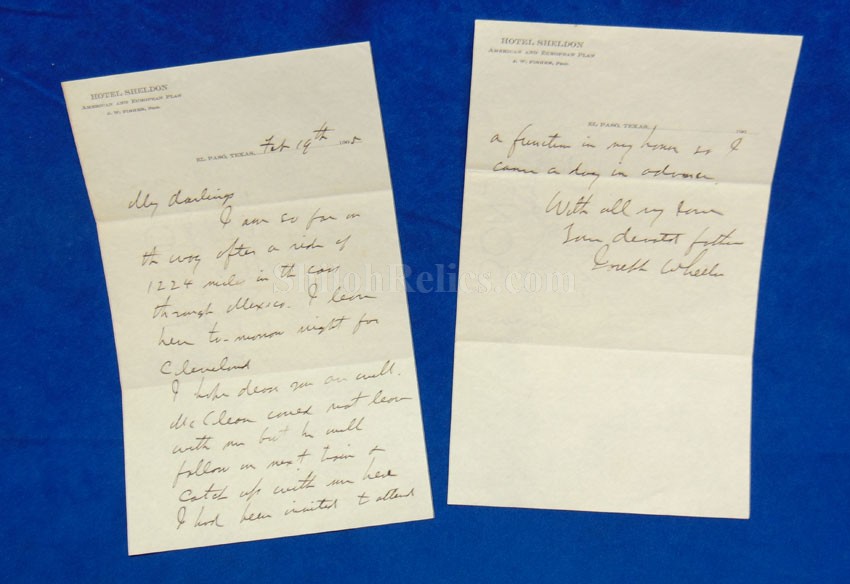 HOTEL SHELDON
AMERICAN AND EUROPEAN PLAN
J. W. FISHER, PRO.
EL PASO, TEXAS, Feb 19th 1905
My darlings
I am so far on
the way after a ride of
1224 miles in the cars
through Mexico. I leave
here to-morrow night for
Cleveland
I hope dear you are well.
McClean could not leave
with me but he will
follow on next train &
catch up with me here
I had been invited to attend
HOTEL SHELDON
AMERICAN AND EUROPEAN PLAN
J. W. FISHER, PRO.
EL PASO, TEXAS, 190
a function in my honor so I
came a day in advance.
With all my love
Your devoted father
Joseph Wheeler
ShilohRelics.com